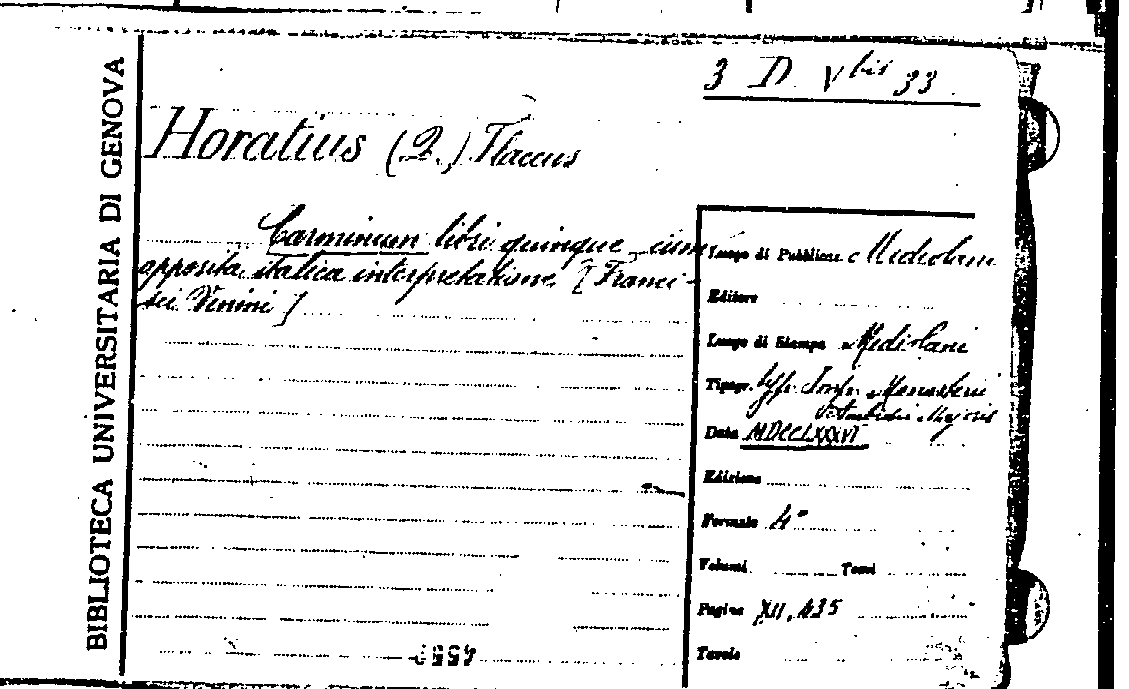 BIBLIOTECA UNIVERSITARIA DI GENOVA
3 D V bis 33
Horatius (Q.) Flaccus
Carminum libri quinque cum
apposita italica interpretatione. [Franci-
sci Venini]
Luogo di Pubblicaz. Mediolani
Editore
Luogo di Stampa Mediolani
Tipogr. typ. Imper. Monasterii
S. Ambrosii Majoris
Data MDCCLXXXVI
Edizione
Formato 4°
Volumi Tomi
Pagine XII, 435
Tavole